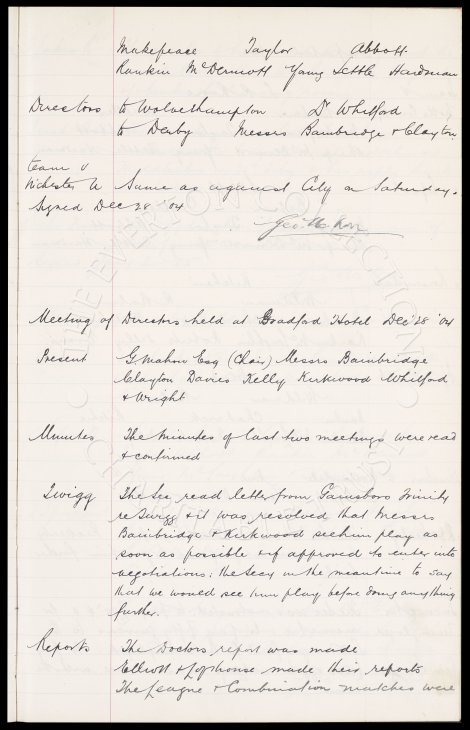 Makepeace Taylor Abbott
Rankin McDermott Young Settle Hardman
Directors to Wolverhampton Dr Whitford
to Derby Messrs Bainbridge & Clayton.
Team v
Same as against City on Saturday.
Signed Dec 28 '04
Geo. Mahon
Meeting of Directors held at Bradford Hotel Dec 28 '04
Present G. Mahon Esq (Chair) Messrs Bainbridge
Clayton Davies Kelly Kirkwood Whitford
& Wright
Minutes The minutes of last two meetings were read
& confirmed
Twigg The Sec read letter from Gainsboro Trinity
re Twigg & it was resolved that Messrs
Bainbridge & Kirkwood see him play as
soon as possible & if approved to enter into
negotiations; the Secy in the meantime to say
that we would see him play before doing anything
further.
Reports The Doctors report was made
Elliott & Lofthouse made their reports
The League & Combination matches were
THE EVERTON COLLECTION